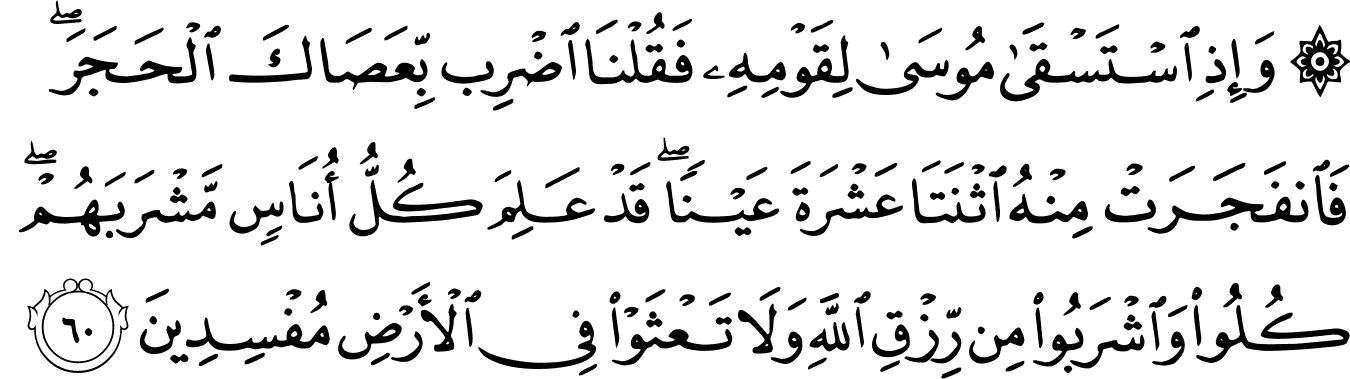 ۞ وَإِذِ ٱسْتَسْقَىٰ مُوسَىٰ لِقَوْمِهِۦ فَقُلْنَا ٱضْرِب بِّعَصَاكَ ٱلْحَجَرَ ۖ
فَٱنفَجَرَتْ مِنْهُ ٱثْنَتَا عَشْرَةَ عَيْنًا ۖ قَدْ عَلِمَ كُلُّ أُنَاسٍ مَّشْرَبَهُمْ ۖ
كُلُوا۟ وَٱشْرَبُوا۟ مِن رِّزْقِ ٱللَّهِ وَلَا تَعْثَوْا۟ فِى ٱلْأَرْضِ مُفْسِدِينَ ٦٠